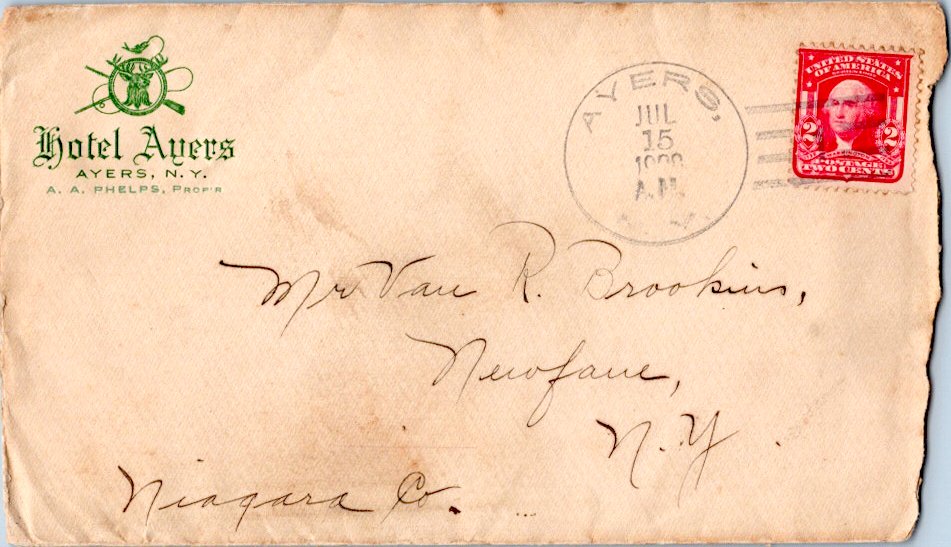 Hotel Ayers
AYERS, N.Y.
A. A. PHELPS, PROP'R
AYERS,
JUL
15
A.M.
N.Y.
UNITED STATES
OF AMERICA
2 2
POSTAGE
TWO CENTS
Mr Van R. Brookins,
Newfane,
N.Y.
Niagara Co.